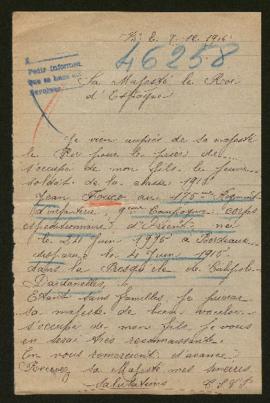 46258
Pedir informes
Sa Majesté le Roi
d'Espagne
Je vien auprès de sa majesté
le Roi pour le prier de
s'occupé de mon fils le jeune
soldat de la classe 1915
Jean au 175me Regiment
d'infanterie 9me Compagnie corps
expeditionnaire d'Orient né
le 24 Juin 1895 a Bordeaux
disparu le 4 Juin 1915
dans la Presqu'ile de Gallipoli
Dardanelles,
Etant sans familles, je
sa majesté de bien vouloir
s'occupé de mon fils je vous
en serai très reconnaissante.
En vous remerciant d'avance
Recevez sa Majesté mes sincères
salutations